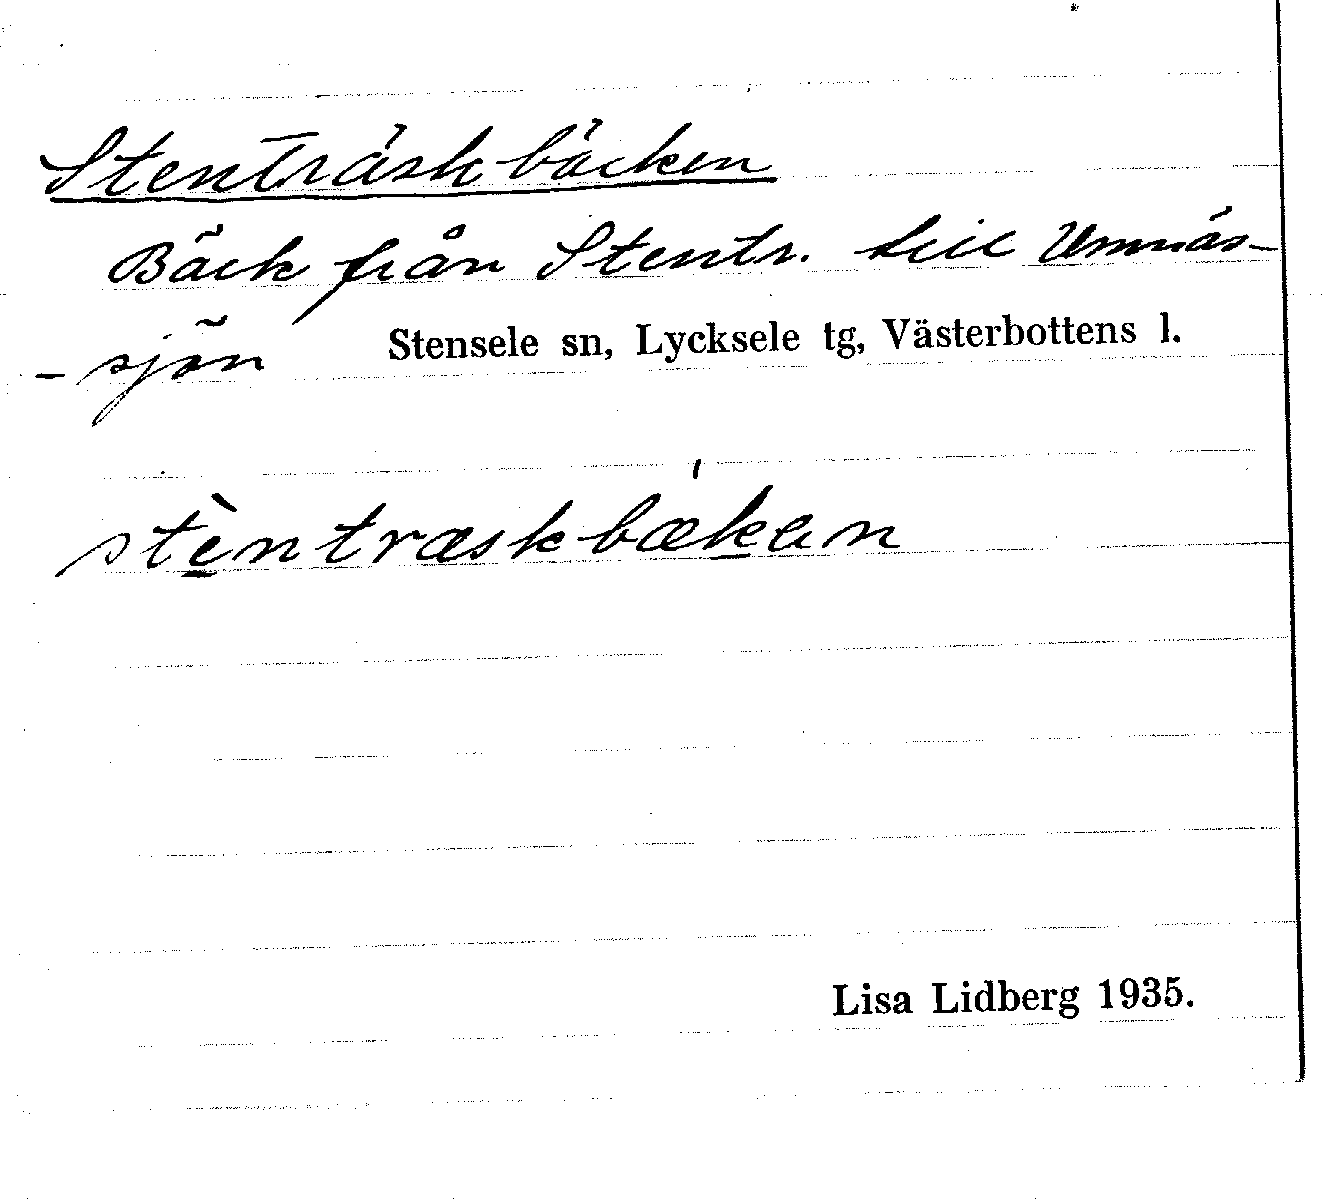 Stenträskbäcken
Bäck från Stentr. till Umnäs-
- sjön Stensele sn, Lycksele tg, Västerbottens l.
stèntræskbækan
Lisa Lidberg 1935.